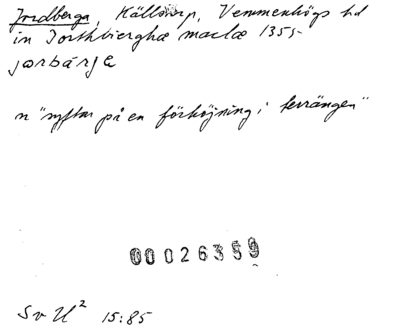 Jordberga, Källstorp, Vemmenhögs hd
in Jorthbierghæ marclæ 1355
jorbárja
n "syftar på en förhöjning i terrängen"
00026359
Sv U² 15:85